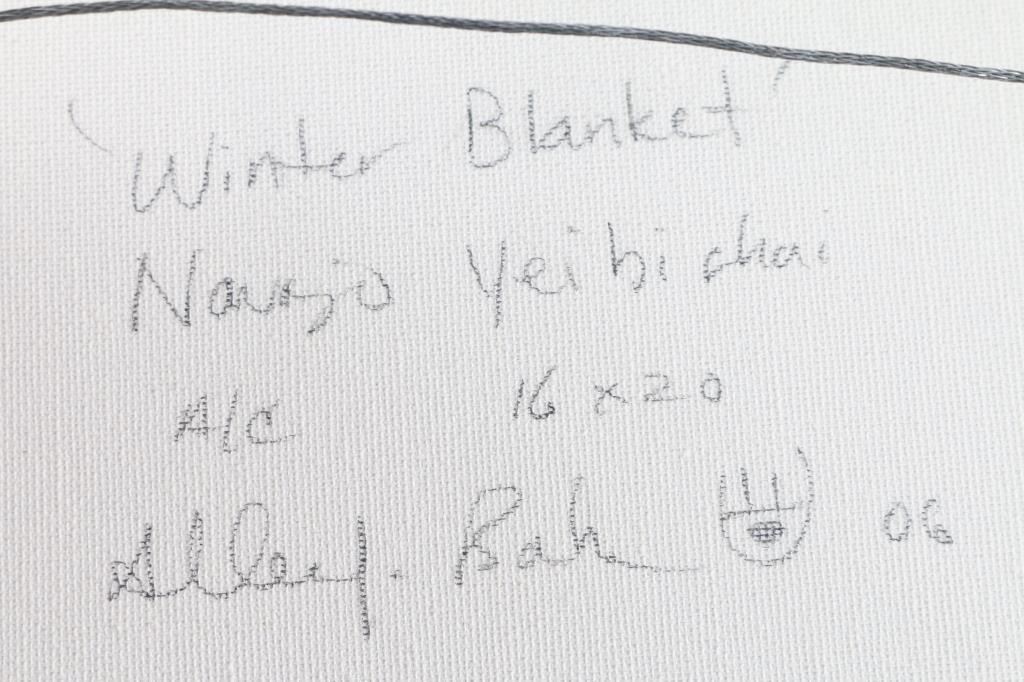 'Winter Blanket'
Navajo Yeibichai
A/C 16 x 20
Allen. Bah 06